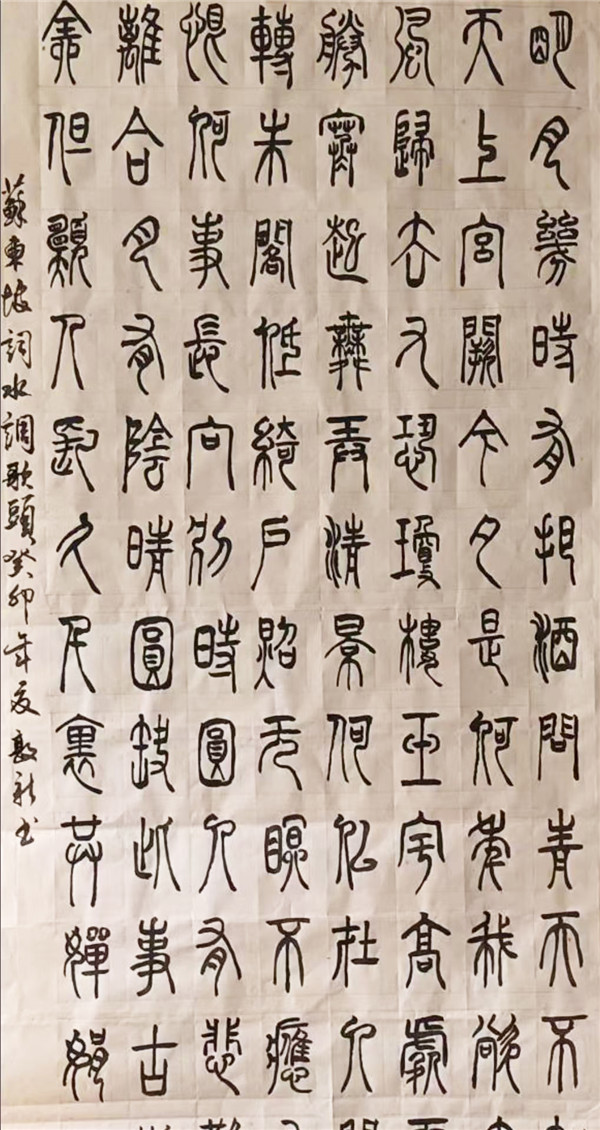 明月幾時有把酒問青天不
天上宮闕今夕是何年我欲
風歸去又恐瓊樓玉宇高處
勝寒起舞弄清景何似在人
轉朱閣低綺戶照无眠不應
恨何事長向別時圓人有悲
離合月有陰晴圓缺此事古
全但願人長久千裏共嬋娟
蘇東坡詞水調歌頭癸卯年夏书